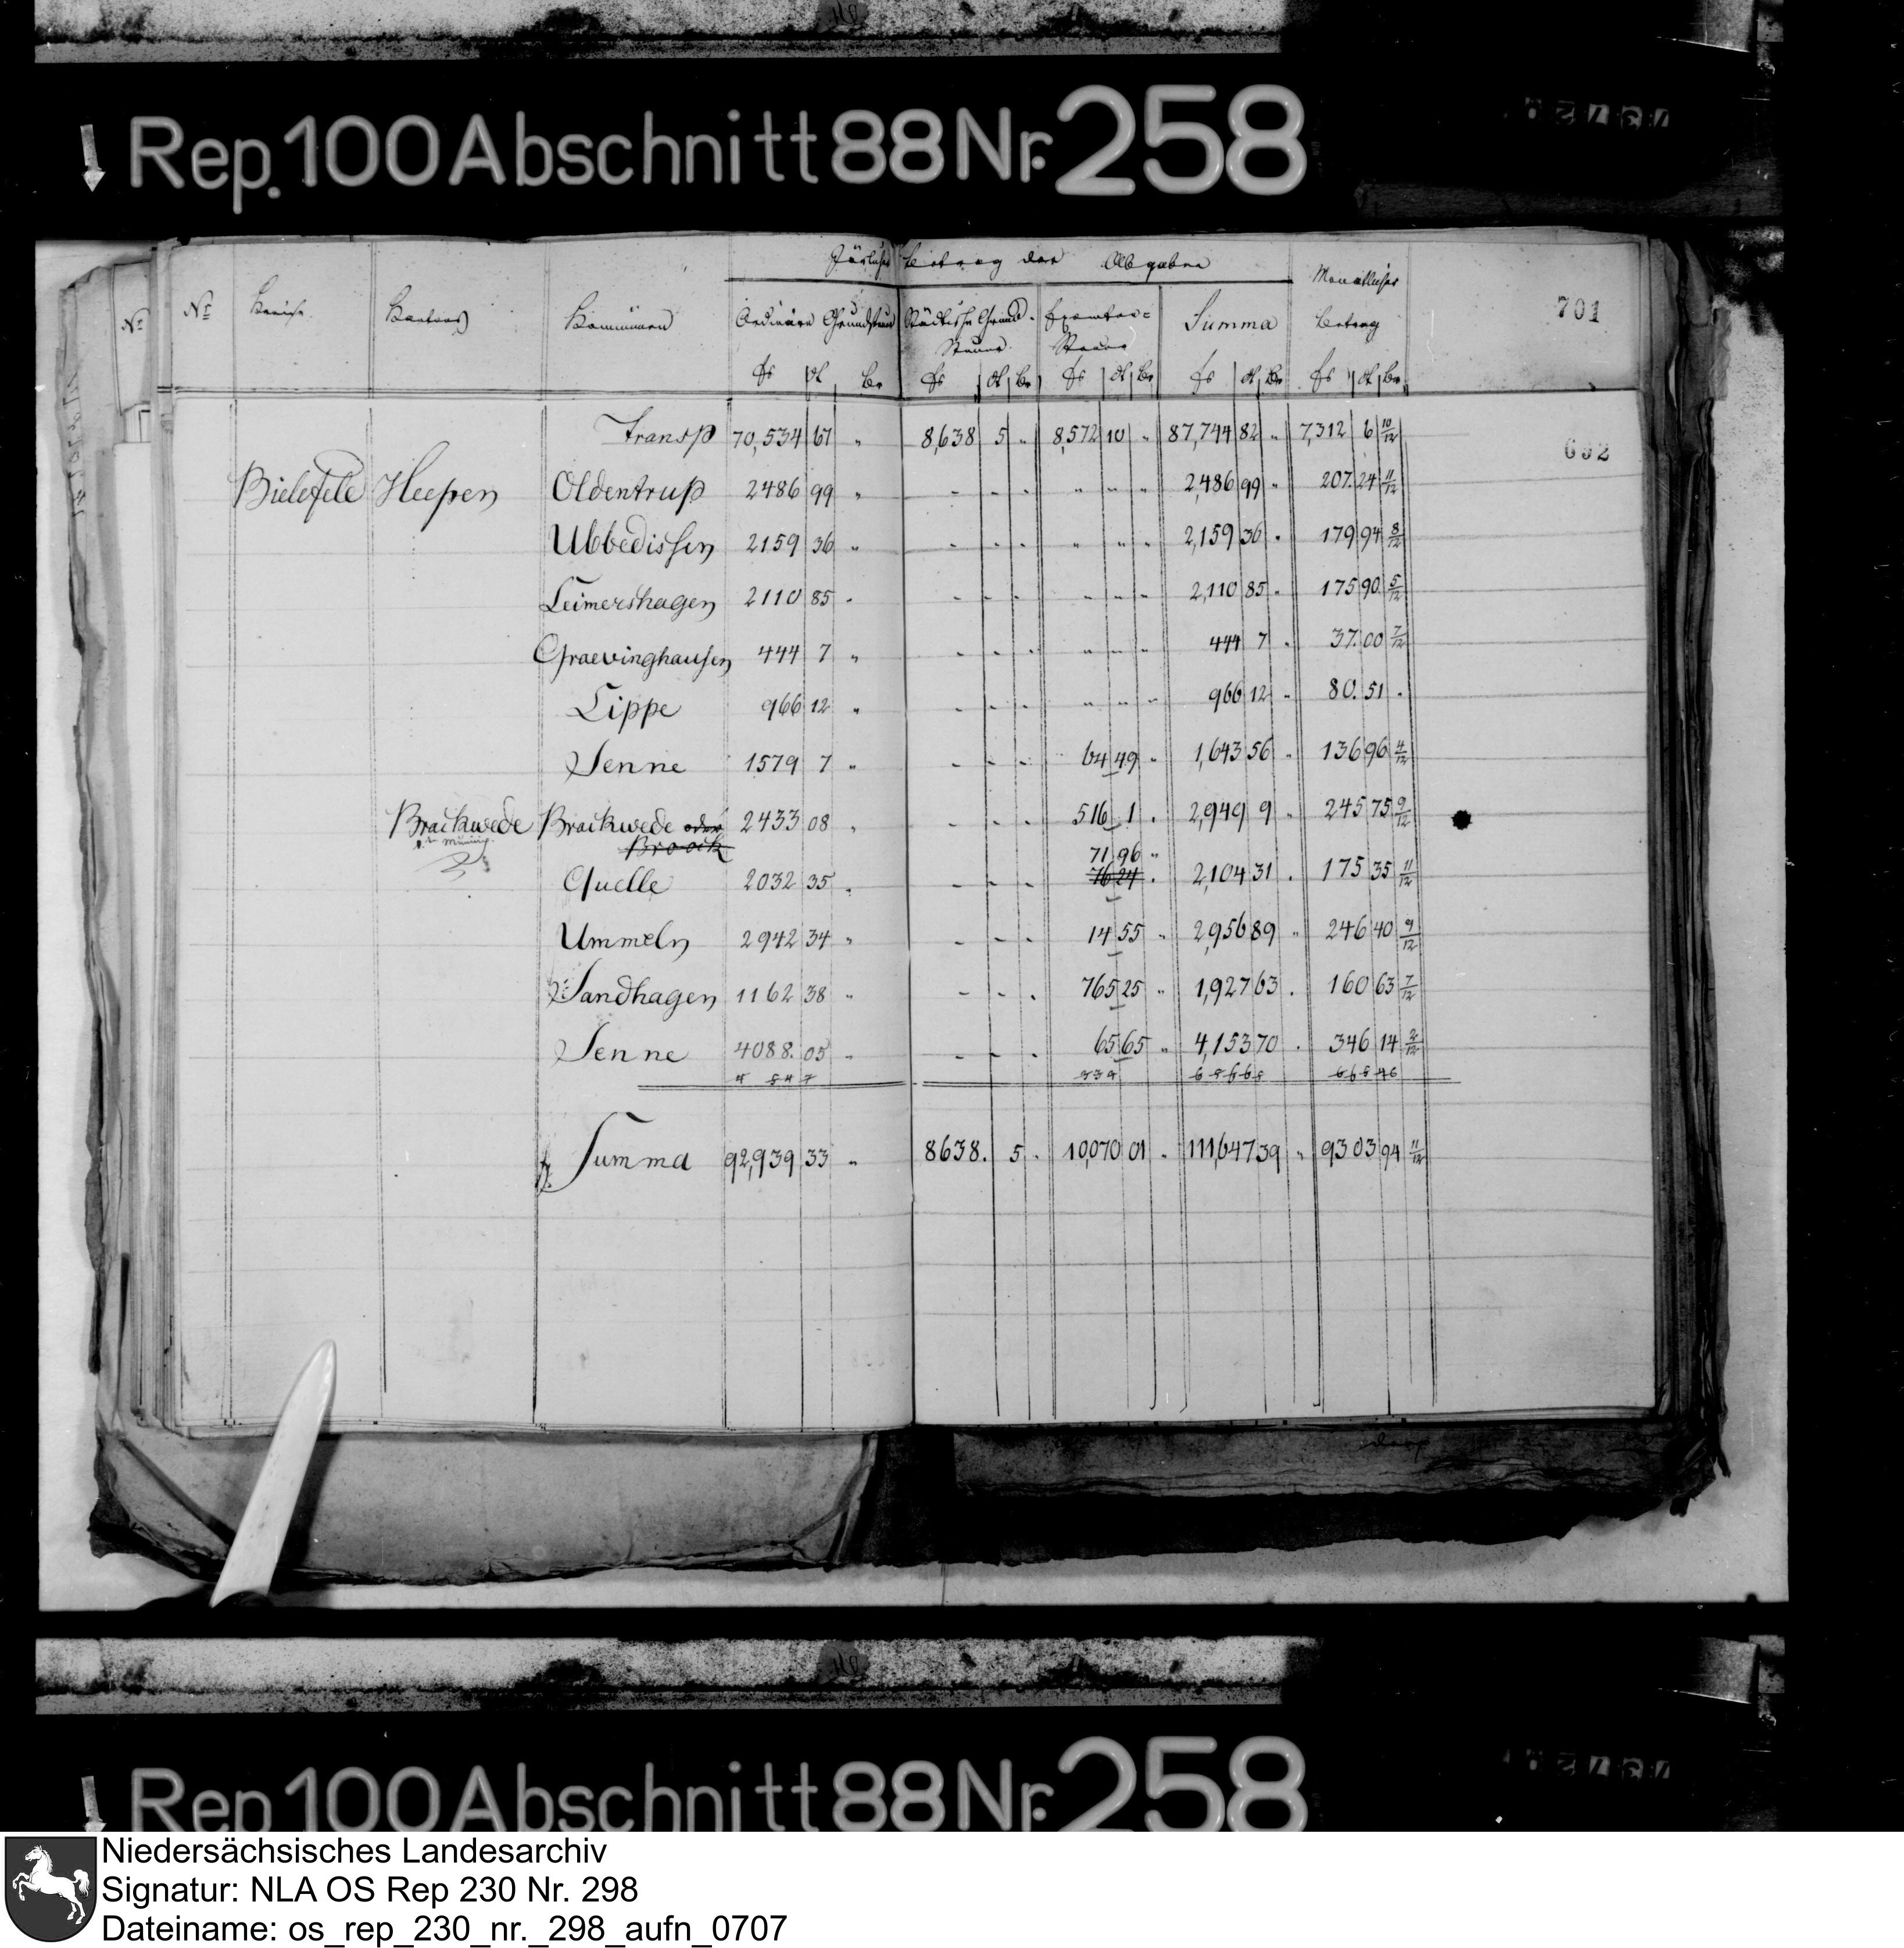 Rep. 100 Abschnitt 88 Nr. 258
Jährlicher Betrag der Abgaben
Monatlicher
701
Nr. Nr. Bezirk Kantons Kommünen Ordinäre Grundsteuer Städtische Grund- Exemten- Summa Betrag
Steuer Steuer
fs ct be fs ct be fs ct be fs ct be fs ct be
Transp 70,534 67 " 8,638 5 " 8,572 10 " 87,744 82 " 7,312 6 10/12
692
Bielefeld Heepen Oldentrup 2486 99 " - - - " " " 2,486 99 " 207. 24 11/12
Ubbedissen 2159 36 " - - - " " " 2,159 36 " 179 94 8/12
Leimershagen 2110 85 " - - - " " " 2,110 85 " 175 90 5/12
Graevinghausen 444 7 " - - - " " " 444 7 " 37. 00 7/12
Lippe 966 12 " - - - " " " 966 12 " 80. 51 "
Senne 1579 7 " - - - 64 49 " 1,643 56 " 136 96 4/12
Brackwede Brackwede oder 2433 08 " - - - 516 1 " 2,949 9 " 245 75 9/12
Broock
71 96 "
Quelle 2032 35 " - - - 76 24 " 2,104 31 " 175 35 11/12
Ummeln 2942 34 " - - - 14 55 " 2,956 89 " 246 40 9/12
Sandhagen 1162 38 " - - - 765 25 " 1,927 63 " 160 63 7/12
Senne 4088. 05 " - - - 65 65 " 4,153 70 " 346 14 2/12
Summa 92,939 33 " 8638. 5 " 10,070 01 " 111,647 39 " 9303 94 11/12
Rep. 100 Abschnitt 88 Nr. 258
Niedersächsisches Landesarchiv
Signatur: NLA OS Rep 230 Nr. 298
Dateiname: os_rep_230_nr._298_aufn_0707